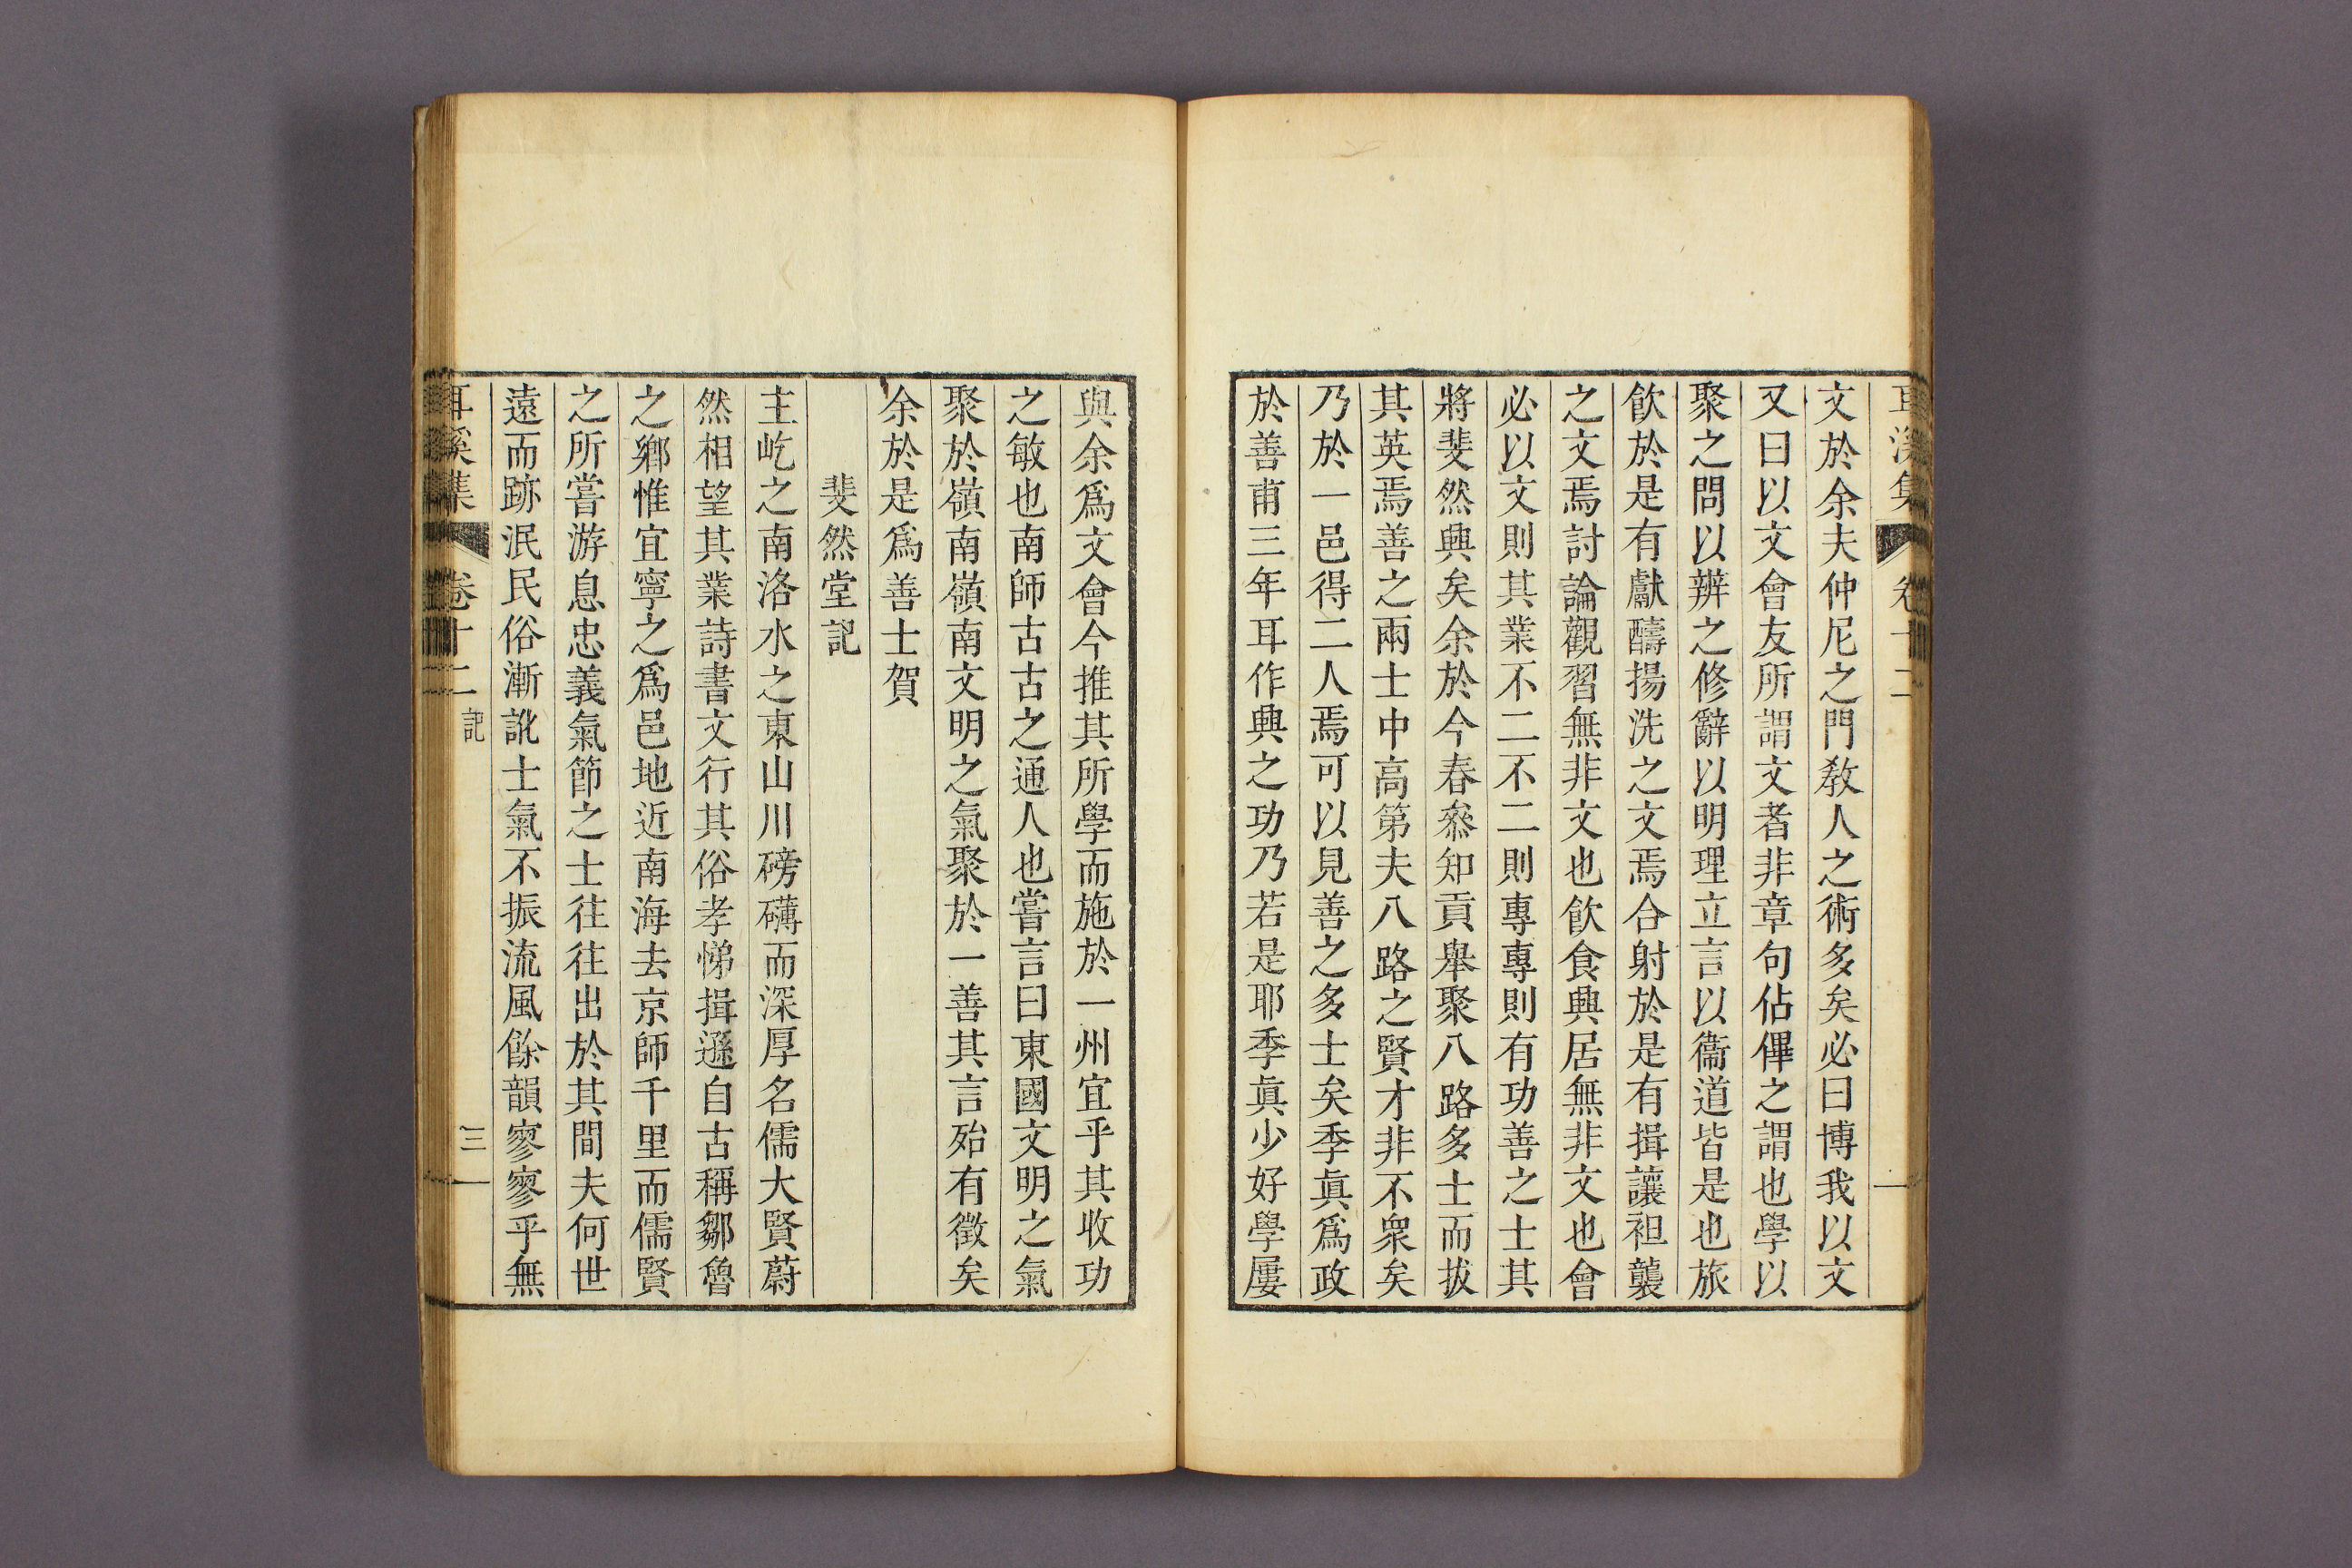 耳溪集 卷十二
文於余夫仲尼之門敎人之術多矣必曰博我以文
又曰以文會友所謂文者非章句佔僤之謂也學以
聚之問以辨之修辭以明理立言以衞道皆是也旅
飮於是有獻醻揚洗之文焉合射於是有揖讓袒襲
之文焉討論觀習無非文也飮食興居無非文也會
必以文則其業不二不二則專專則有功善之士其
將斐然興矣余於今春叅知貢舉聚八路多士而拔
其英焉善之兩士中高第夫八路之賢才非不衆矣
乃於一邑得二人焉可以見善之多士矣季眞爲政
於善甫三年耳作興之功乃若是耶季眞少好學屢
與余爲文會今推其所學而施於一州宜乎其收功
之敏也南師古古之通人也嘗言曰東國文明之氣
聚於嶺南嶺南文明之氣聚於一善其言殆有徵矣
余於是爲善士賀
斐然堂記
主屹之南洛水之東山川磅礴而深厚名儒大賢蔚
然相望其業詩書文行其俗孝悌揖遜自古稱鄒魯
之鄕惟宜寧之爲邑地近南海去京師千里而儒賢
之所嘗游息忠義氣節之士往往出於其間夫何世
遠而跡泯民俗漸訛士氣不振流風餘韻寥寥乎無
耳溪集 卷十二 記 三